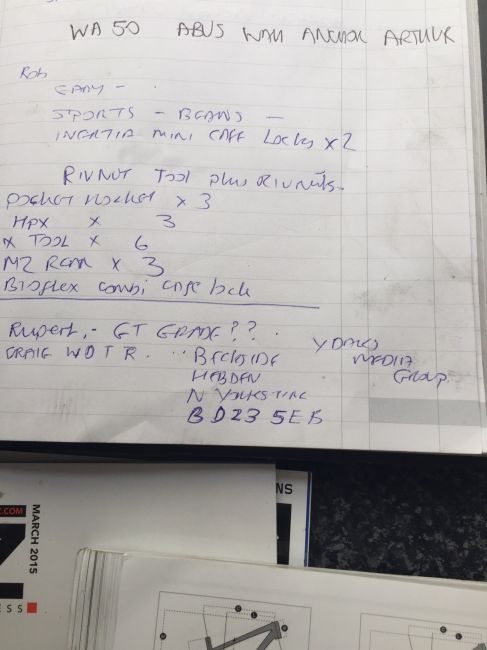 WA 50 ABUS WALL ANCHOR ARTHUR
Rob
SPORTS - BEANS -
INERTIA MINI CAFF Locks x 2
RIVNUT TOOL plus RIVNUTS.
POCKET ROCKET x 3
HPX x 3
X TOOL x 6
M2 x 3
Bioflex combi cafe lock
Rupert,- GT GRADE??
CRAIG WOTR.
BECKSIDE
HEBDEN
N YORKSHIRE
BD23 5EB
MEDIA
Group.
NS
.COM
MARCH 2015
ESS